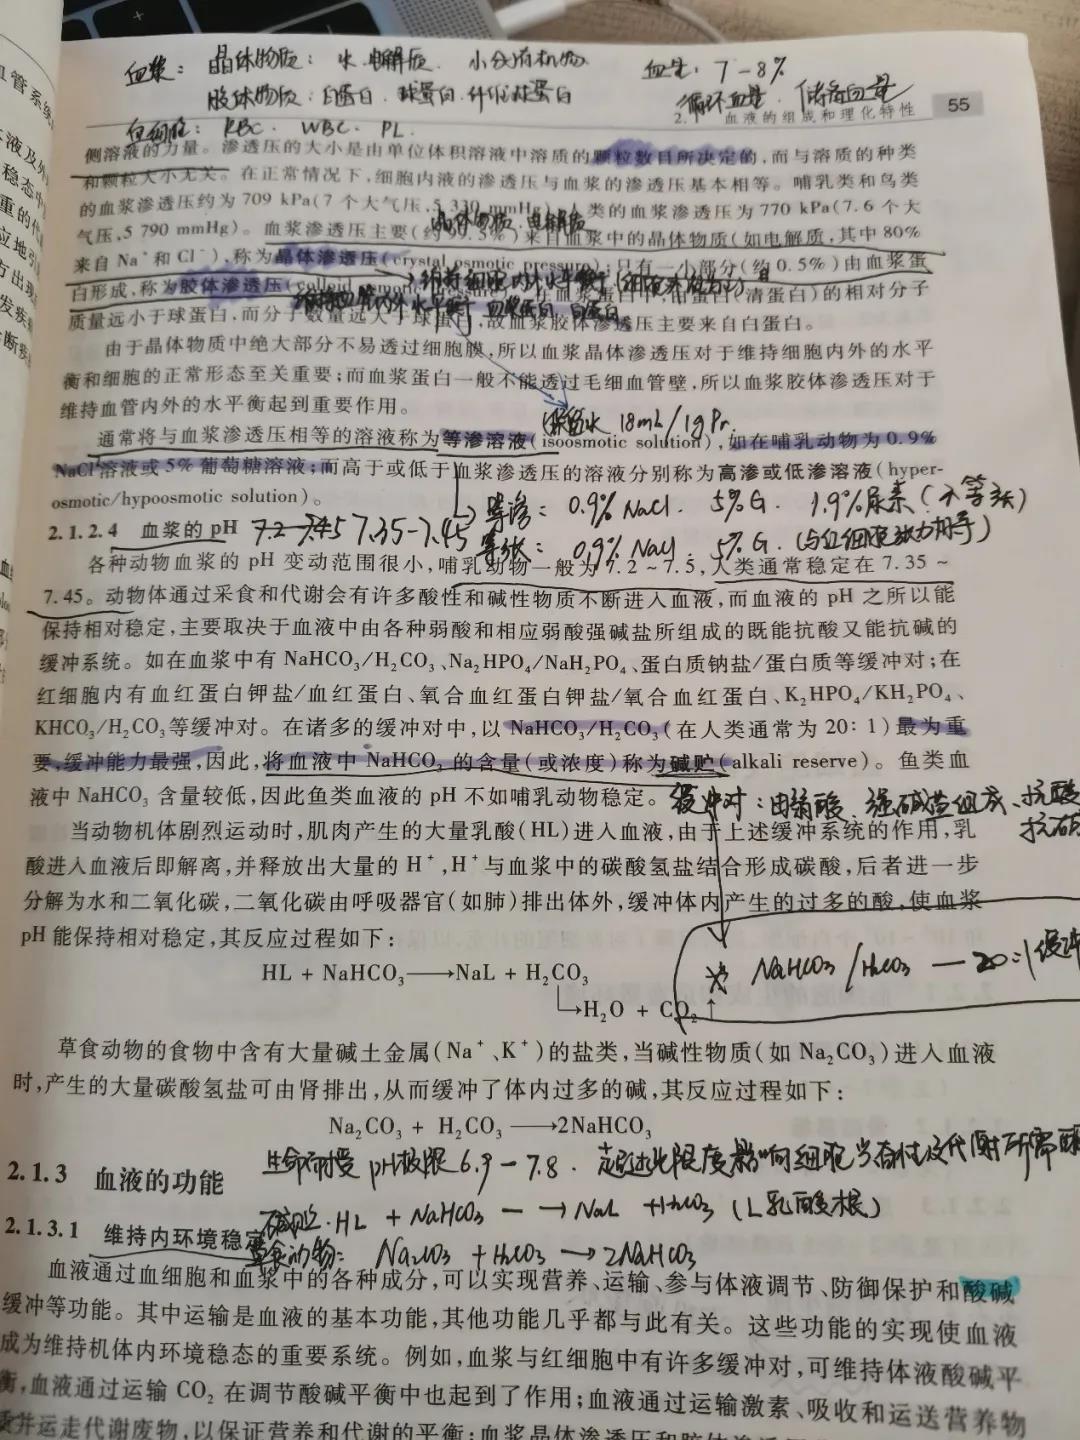 血浆：晶体物质：水、电解质、小分子有机物
胶体物质：白蛋白、球蛋白、纤维蛋白
血量：7-8%
循环血量、储备血量
血细胞：RBC. WBC. PL.
2. 血液的组成和理化特性 55
侧溶液的力量。渗透压的大小是由单位体积溶液中溶质的颗粒数目所决定的，而与溶质的种类
和颗粒大小无关。在正常情况下，细胞内液的渗透压与血浆的渗透压基本相等。哺乳类和鸟类
的血浆渗透压约为 709 kPa(7 个大气压、5 330 mmHg)，人类的血浆渗透压为 770 kPa(7.6 个大
气压、5 790 mmHg)。血浆渗透压主要(约 99.5%)来自血浆中的晶体物质(如电解质，其中 80%
晶体物质、电解质
来自 Na⁺和 Cl⁻)，称为晶体渗透压(crystal osmotic pressure)；只有一小部分(约 0.5%)由血浆蛋
维持细胞内外水平衡
白形成，称为胶体渗透压(colloid osmotic 在血浆蛋白中，由 白(清蛋白)的相对分子
血管内外水平衡 血浆蛋白、白蛋白
质量远小于球蛋白，而分子数量远大于球蛋白，故血浆胶体渗透压主要来自白蛋白。
由于晶体物质中绝大部分不易透过细胞膜，所以血浆晶体渗透压对于维持细胞内外的水平
衡和细胞的正常形态至关重要；而血浆蛋白一般不能透过毛细血管壁，所以血浆胶体渗透压对于
维持血管内外的水平衡起到重要作用。
水 18ml/1g Pr.
通常将与血浆渗透压相等的溶液称为等渗溶液(isoosmotic solution)，如在哺乳动物为 0.9%
NaCl 溶液或 5% 葡萄糖溶液；而高于或低于血浆渗透压的溶液分别称为高渗或低渗溶液(hyper-
osmotic/hypoosmotic solution)。
等渗：0.9% NaCl. 5%G. 1.9%尿素(不等张)
2.1.2.4 血浆的 pH 7.35-7.45
等张：0.9% NaCl 5%G. (与红细胞张力相等)
各种动物血浆的 pH 变动范围很小，哺乳动物一般为 7.2～7.5，人类通常稳定在 7.35～
7.45。动物体通过采食和代谢会有许多酸性和碱性物质不断进入血液，而血液的 pH 之所以能
保持相对稳定，主要取决于血液中由各种弱酸和相应弱酸强碱盐所组成的既能抗酸又能抗碱的
缓冲系统。如在血浆中有 NaHCO₃/H₂CO₃、Na₂HPO₄/NaH₂PO₄、蛋白质钠盐/蛋白质等缓冲对；在
红细胞内有血红蛋白钾盐/血红蛋白、氧合血红蛋白钾盐/氧合血红蛋白、K₂HPO₄/KH₂PO₄、
KHCO₃/H₂CO₃等缓冲对。在诸多的缓冲对中，以 NaHCO₃/H₂CO₃(在人类通常为 20：1)最为重
要，缓冲能力最强，因此，将血液中 NaHCO₃ 的含量(或浓度)称为碱贮(alkali reserve)。鱼类血
液中 NaHCO₃ 含量较低，因此鱼类血液的 pH 不如哺乳动物稳定。
缓冲对：由弱酸、强碱盐组成、抗酸
抗碱
当动物机体剧烈运动时，肌肉产生的大量乳酸(HL)进入血液，由于上述缓冲系统的作用，乳
酸进入血液后即解离，并释放出大量的 H⁺，H⁺与血浆中的碳酸氢盐结合形成碳酸，后者进一步
分解为水和二氧化碳，二氧化碳由呼吸器官(如肺)排出体外，缓冲体内产生的过多的酸，使血浆
pH 能保持相对稳定，其反应过程如下：
HL + NaHCO₃⟶NaL + H₂CO₃
NaHCO₃/H₂CO₃ — 20:1 缓冲
→H₂O + CO₂↑
草食动物的食物中含有大量碱土金属(Na⁺、K⁺)的盐类，当碱性物质(如 Na₂CO₃)进入血液
时，产生的大量碳酸氢盐可由肾排出，从而缓冲了体内过多的碱，其反应过程如下：
Na₂CO₃ + H₂CO₃ ⟶2NaHCO₃
生命耐受 pH极限6.9-7.8. 超过此限度影响细胞兴奋性及代谢所需酶
2.1.3 血液的功能
碱贮. HL + NaHCO₃ → NaL + H₂CO₃ (L乳酸根)
2.1.3.1 维持内环境稳定
草食动物：Na₂CO₃ + H₂CO₃ → 2NaHCO₃
血液通过血细胞和血浆中的各种成分，可以实现营养、运输、参与体液调节、防御保护和酸碱
缓冲等功能。其中运输是血液的基本功能，其他功能几乎都与此有关。这些功能的实现使血液
成为维持机体内环境稳态的重要系统。例如，血浆与红细胞中有许多缓冲对，可维持体液酸碱平
衡，血液通过运输 CO₂ 在调节酸碱平衡中也起到了作用；血液通过运输激素、吸收和运送营养物
质并运走代谢废物，以保证营养和代谢的平衡；血浆晶体渗透压和胶体渗透